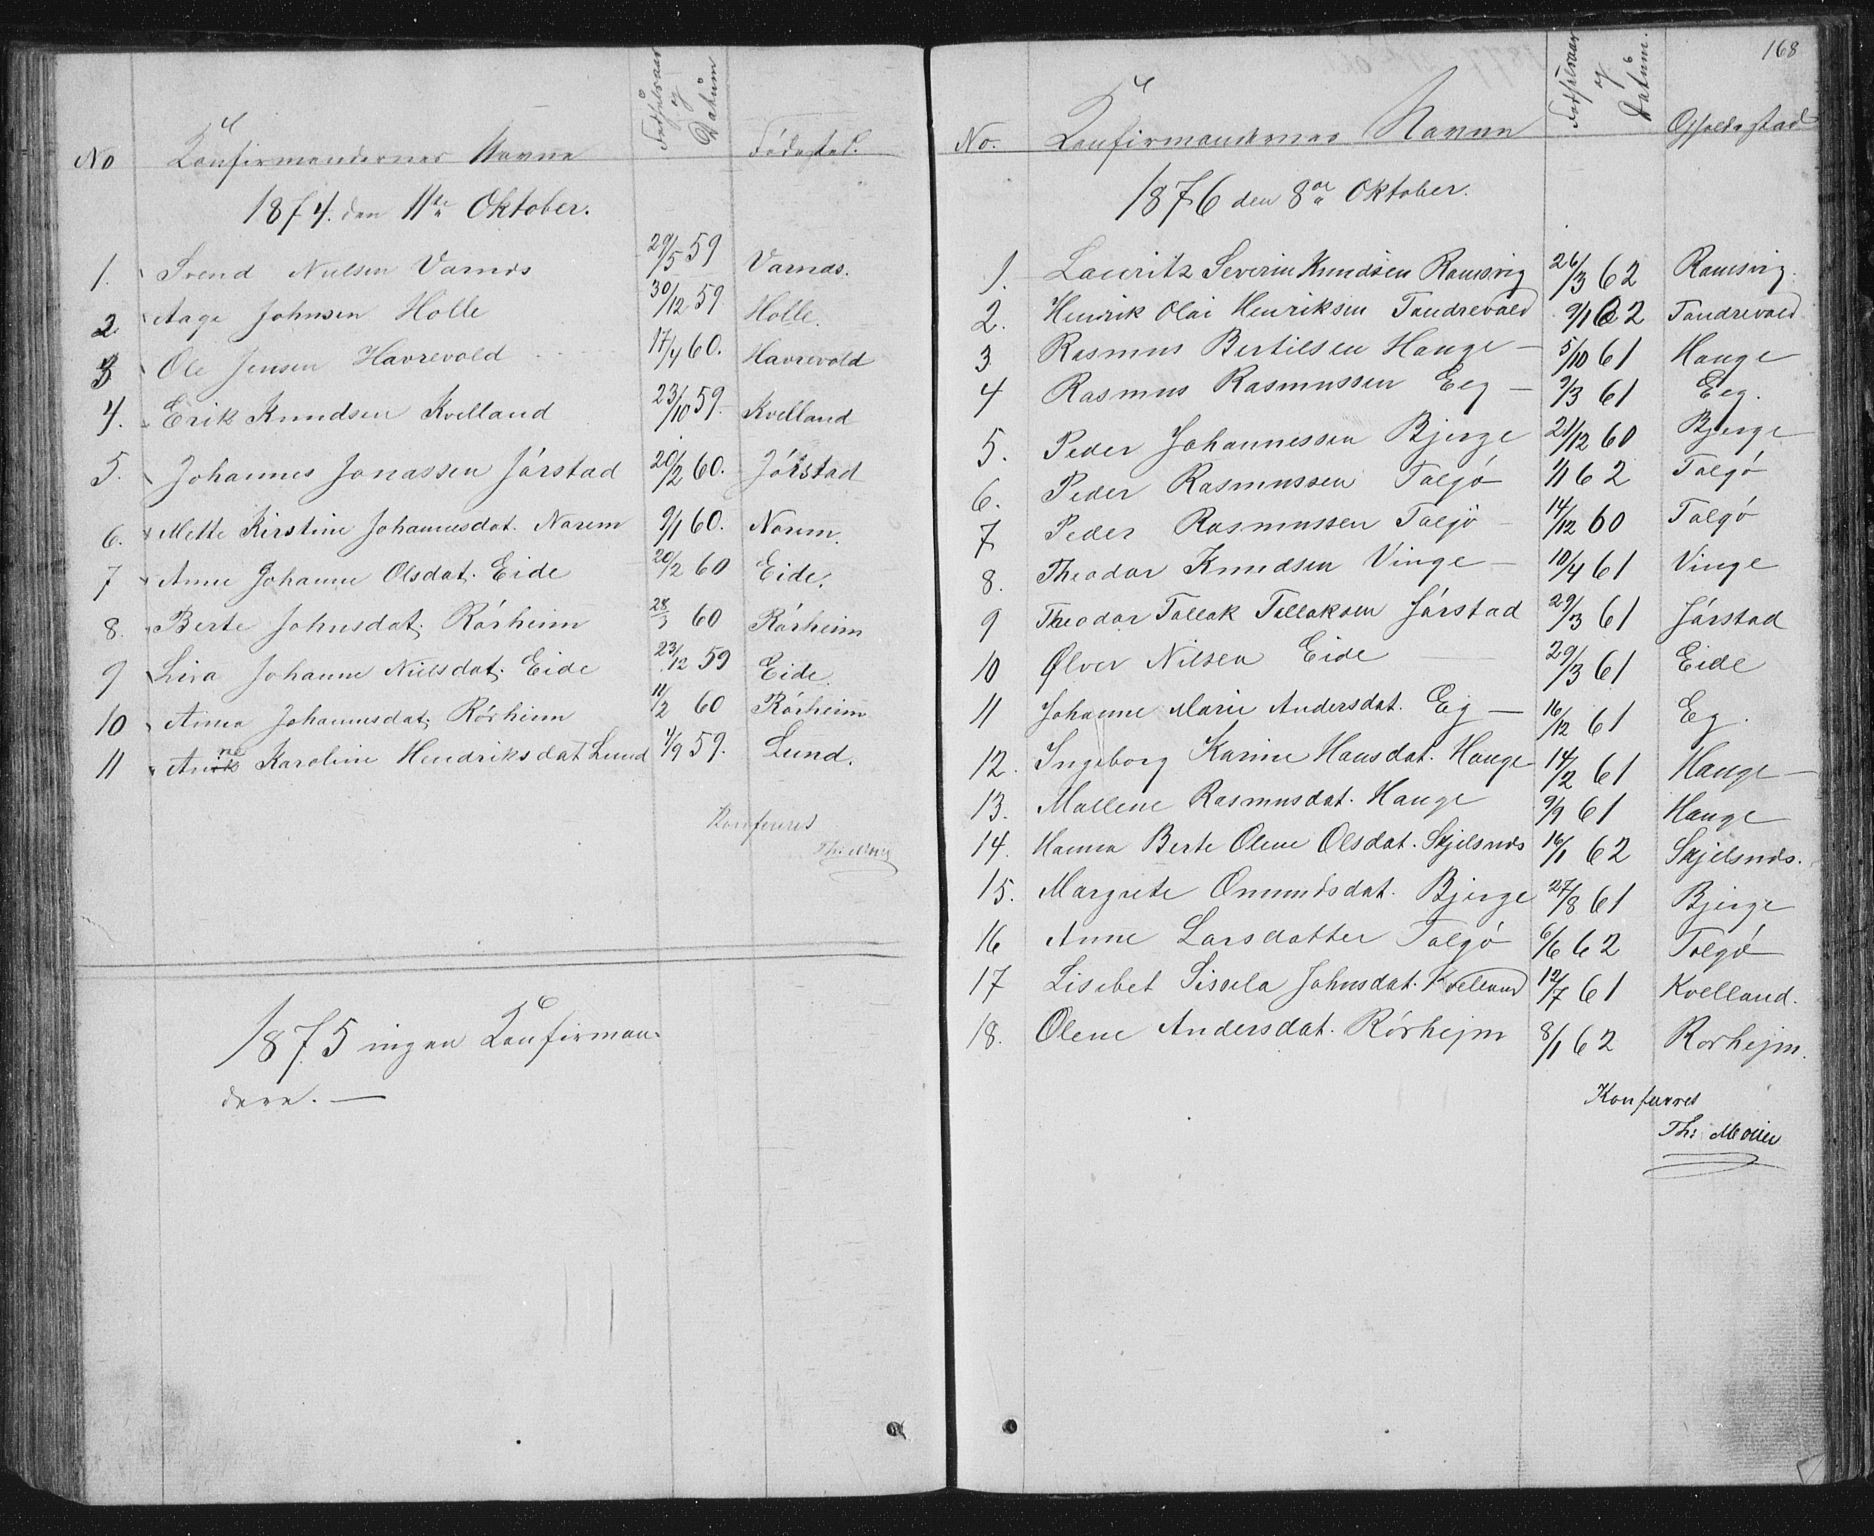 No Konfirmandernes Navne Fødselsaar og Datum Fødested.
1874. den 11te Oktober.
1. Svend Nielsen Varnæs 29/5 59 Varnæs.
2. Aage Johnsen Holle 30/12 59 Holle.
3 Ole Jensen Havrevold 17/4 60. Havrevold
4. Erik Knudsen Kvelland 23/10 59. Kvelland
5. Johannes Jonassen Jórstad 20/2 60. Jórstad
6. Mette Kirstine Johannesdat. Narem 9/1 60. Narem.
7 Anne Johanne Olsdat. Eide 20/2 60 Eide.
8. Berte Johnsdat. Rórheim 28/3 60 Rórheim
9 Lisa Johanne Nielsdat. Eide 23/12 59 Eide.
10 Anna Johannesdat. Rórheim 11/2 60 Rórheim
11 Anne Karoline Hendriksdat Lund 4/9 59. Lund.
Konfereret
1875 ingen Konfirman-
dere. —
168
No. Konfirmandernes Navne Fødselsaar og Datum. Opholdsstad
1876 den 8de Oktober.
1. Lauritz Severin Knudsen Ramsvig 26/3 62 Ramsvig.
2. Henrik Olai Henriksen Tandrevold 9/1 62 Tandrevold
3 Rasmus Bertilsen Hauge — 5/10 61 Hauge
4 Rasmus Rasmussen Eeg — 9/3 61 Eeg.
5. Peder Johannessen Bjerge 21/12 60 Bjerge
6. Peder Rasmussen Talgó 1/1 62 Talgó
7 Peder Rasmussen Talgó — 14/12 60 Talgó
8. Theodor Knudsen Vinge — 10/4 61 Vinge
9 Theodor Tollak Tollaksen Jórstad 29/3 61 Jórstad
10 Ølver Nilsen Eide — 29/3 61 Eide
11 Johanne Marie Andersdat. Eg — 16/12 61 Eg.
12. Ingeborg Karine Hansdat. Hauge 14/2 61 Hauge —
13. Mallene Rasmusdat. Hauge 9/9 61 Hauge
14. Hanna Berte Olene Olsdat. Skjelsnæs 16/1 62 Skjelsnæs.
15. Margrete Omundsdat. Bjerge 27/8 61 Bjerge
16 Anne Larsdatter Talgó 6/6 62 Talgó
17 Lisebet Sissela Johnsdat. Kvelland 12/7 61 Kvelland.
18. Olene Andersdat. Rórhejm 8/1 62 Rorhejm.
Konfereret
Th: